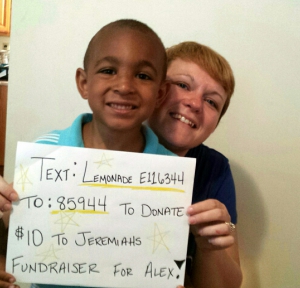 TEXT: LEMONADE E116344
TO: 85944 TO DONATE
$10 TO JEREMIAHS
FUNDRAISER FOR ALEX!